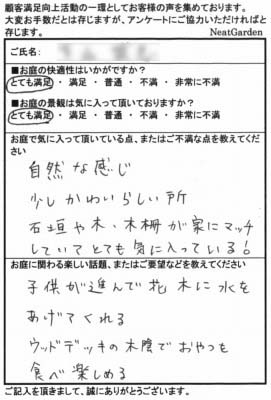 顧客満足向上活動の一環としてお客様の声を集めております。
大変お手数だとは存じますが、アンケートにご協力いただければと
存じます。 NeatGarden
ご氏名:
■お庭の快適性はいかがですか?
とても満足 ・ 満足 ・ 普通 ・ 不満 ・ 非常に不満
■お庭の景観は気に入って頂いておりますか?
とても満足 ・ 満足 ・ 普通 ・ 不満 ・ 非常に不満
お庭で気に入って頂いている点、またはご不満な点を教えてくだ
さい
自然な感じ
少しかわいらしい所
石垣や木、木柵が家にマッチ
していてとても気に入っている!
お庭に関わる楽しい話題、またはご要望などを教えてください
子供が進んで花木に水を
あげてくれる
ウッドデッキの木陰でおやつを
食べ楽しめる
ご記入を頂きまして、誠にありがとうございます。